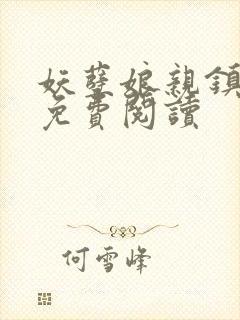 妖孽娘親鎮
免費閱讀
何雪峰